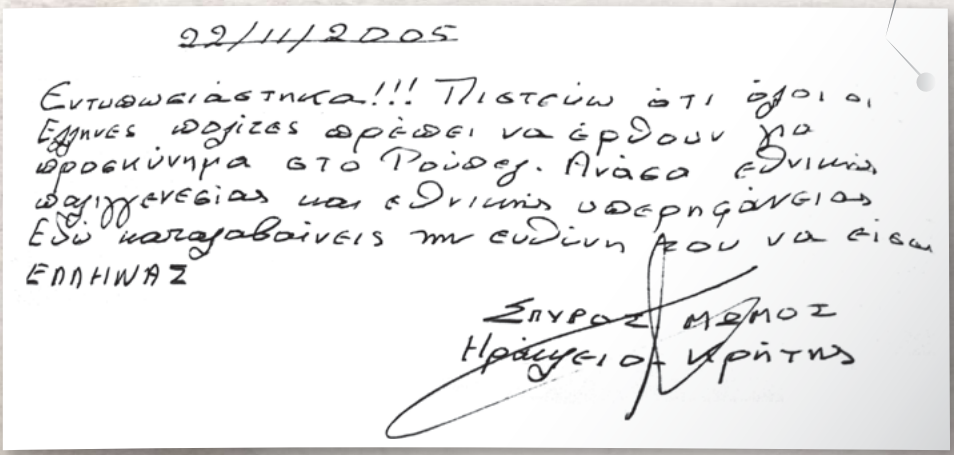 22/11/2005
Εντυπωσιάστηκα!!! Πιστεύω ότι όλοι οι
Έλληνες πολίτες πρέπει να έρθουν για
προσκύνημα στο Ρούπελ. Ανάσα εθνικής
παλιγγενεσίας και εθνικής υπερηφάνειας
Εδώ καταλαβαίνεις την ευθύνη του να είσαι
ΕΛΛΗΝΑΣ
ΣΠΥΡΟΣ ΜΩΜΟΣ
Ηράκλειο Κρήτης